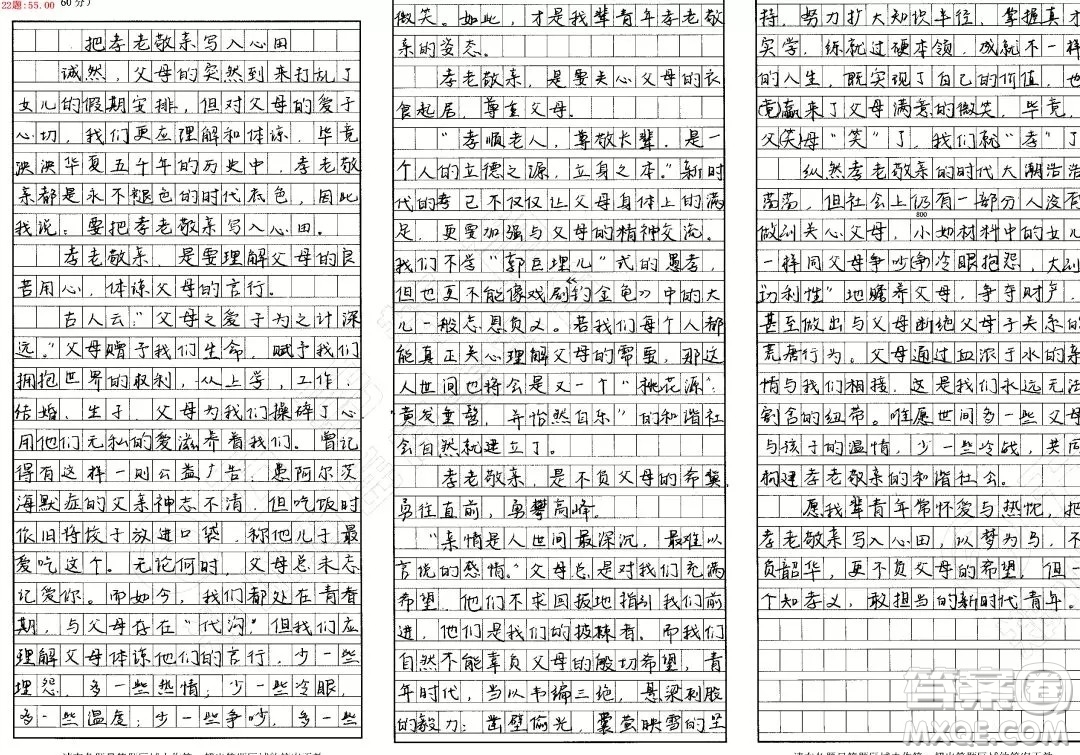 22题:55.00 60分)
把孝老敬亲写入心田
诚然，父母的突然到来打乱了
女儿的假期安排，但对父母的爱子
心切，我们更应理解和体谅，毕竟
泱泱华夏五千年的历史中，孝老敬
亲都是永不褪色的时代底色，因此
我说：要把孝老敬亲写入心田。
孝老敬亲，是要理解父母的良
苦用心，体谅父母的言行。
古人云：“父母之爱子为之计深
远。”父母赠予我们生命，赋予我们
拥抱世界的权利，从上学，工作，
结婚，生子，父母为我们操碎了心
用他们无私的爱滋养着我们。曾记
得有这样一则公益广告：患阿尔茨
海默症的父亲神志不清，但吃饭时
依旧将饺子放进口袋，称他儿子最
爱吃这个。无论何时，父母总未忘
记爱你。而如今，我们都处在青春
期，与父母存在“代沟”，但我们应
理解父母体谅他们的言行，少一些
埋怨，多一些热情；少一些冷眼，
多一些温度；少一些争吵，多一些
微笑。如此，才是我辈青年孝老敬
亲的姿态。
孝老敬亲，是要关心父母的衣
食起居，尊重父母。
“孝顺老人，尊敬长辈，是一
个人的立德之源，立身之本。”新时
代的孝已不仅仅让父母身体上的满
足，更要加强与父母的精神交流。
我们不学“郭巨埋儿”式的愚孝，
但也更不能像戏剧《钓金龟》中的大
儿一般忘恩负义。若我们每个人都
能真正关心理解父母的需要，那这
人世间也将会是又一个“桃花源”：
“黄发垂髫，并怡然自乐”的和谐社
会自然就建立了。
孝老敬亲，是不负父母的希冀，
勇往直前，勇攀高峰。
“亲情是人世间最深沉，最难以
言说的感情。”父母总是对我们充满
希望，他们不求回报地指引我们前
进，他们是我们的披棘者。而我们
自然不能辜负父母的殷切希望，青
年时代，当以韦编三绝，悬梁刺股
的毅力；凿壁偷光，囊萤映雪的坚
持，努力扩大知识半径，掌握真才
实学，练就过硬本领，成就不一样
的人生，既实现了自己的价值，也
(竟)赢来了父母满意的微笑，毕竟，
父(笑)母“笑”了，我们就“孝”了
纵然孝老敬亲的时代大潮浩浩
荡荡，但社会上仍有一部分人没有
800
做到关心父母，小如材料中的女儿
一样同父母争吵(争)冷眼抱怨，大到
“功利性”地赡养父母，争夺财产，
甚至做出与父母断绝父母子关系的
荒唐行为。父母通过血浓于水的亲
情与我们相接，这是我们永远无法
割舍的纽带。唯愿世间多一些父母
与孩子的温情，少一些冷战，共同
构建孝老敬亲的和谐社会。
愿我辈青年常怀爱与热忱，把
孝老敬亲写入心田，以梦为马，不
负韶华，更不负父母的希望，但一
个知孝义，敢担当的新时代青年。
答案圈